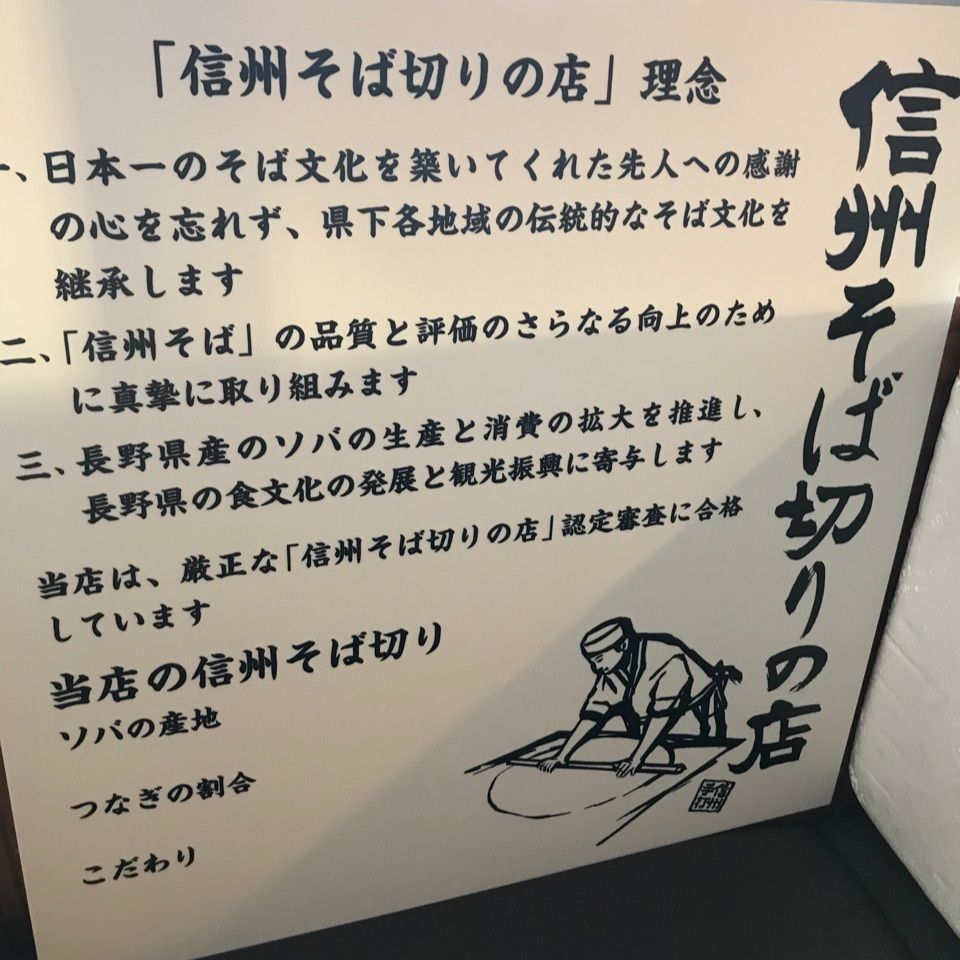 「信州そば切りの店」理念
一、日本一のそば文化を築いてくれた先人への感謝
の心を忘れず、県下各地域の伝統的なそば文化を
継承します
二、「信州そば」の品質と評価のさらなる向上のため
に真摯に取り組みます
三、長野県産のソバの生産と消費の拡大を推進し、
長野県の食文化の発展と観光振興に寄与します
当店は、厳正な「信州そば切りの店」認定審査に合格
しています
当店の信州そば切り
ソバの産地
つなぎの割合
こだわり
信州そば切りの店
信州
手打